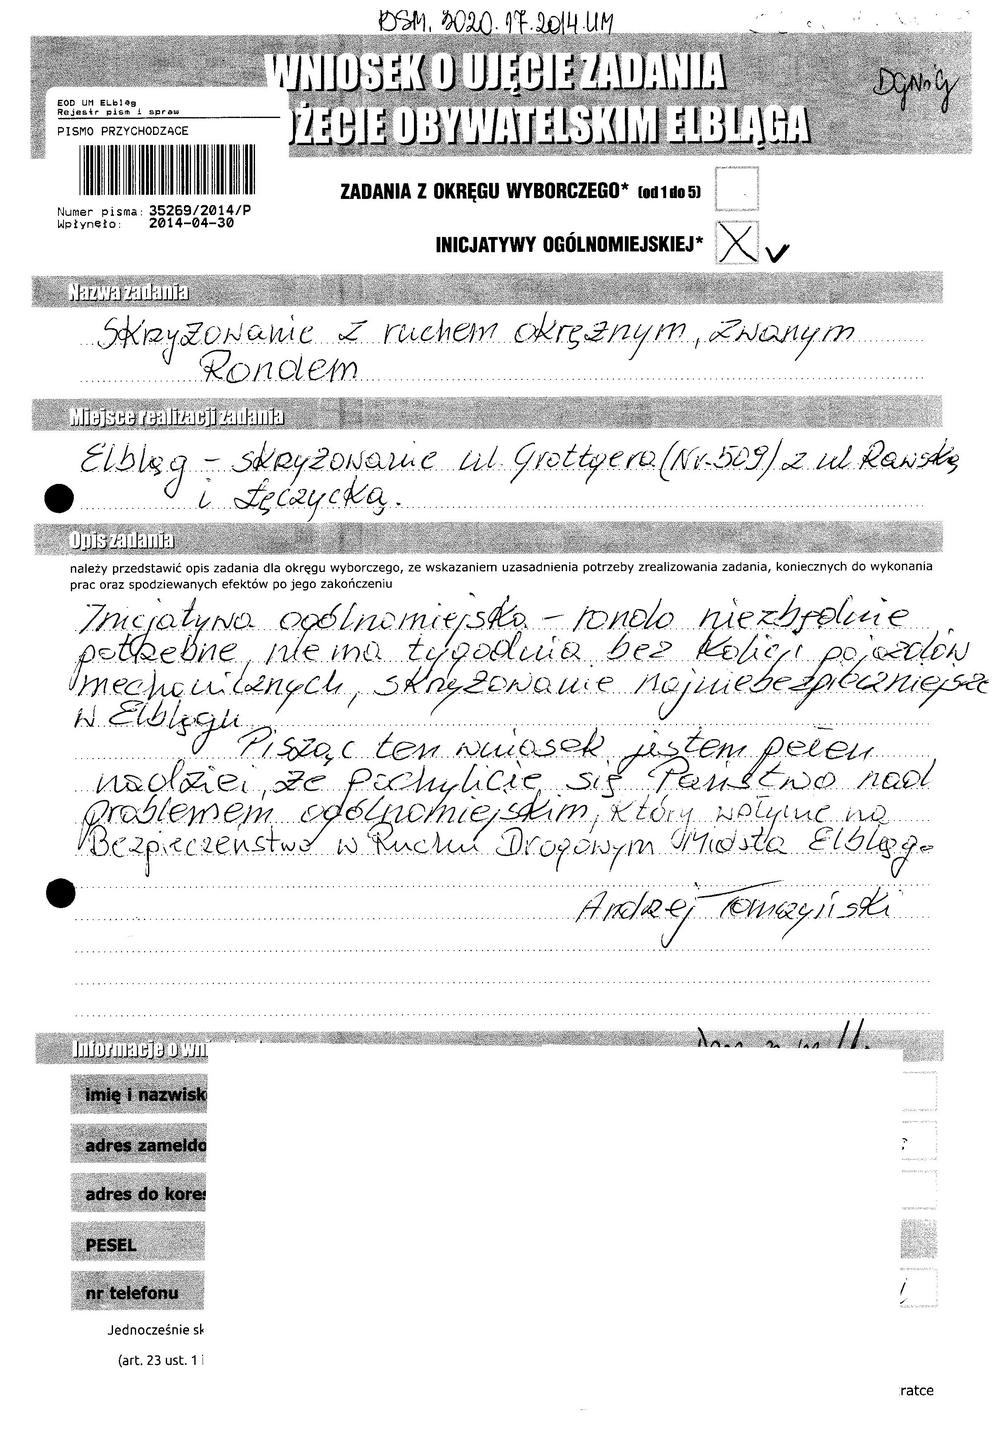 DSM. 3020.17.2014.UM
WNIOSEK O UJĘCIE ZADANIA
DGNiG
ŻECIE OBYWATELSKIM ELBLĄGA
EOD UM Elbląg
Rejestr pism i spraw
PISMO PRZYCHODZĄCE
Numer pisma: 35269/2014/P
Wpłynęło: 2014-04-30
ZADANIA Z OKRĘGU WYBORCZEGO* (od 1 do 5)
INICJATYWY OGÓLNOMIEJSKIEJ* X
Nazwa zadania
Skrzyżowanie z ruchem okrężnym, zwanym
Rondem
Miejsce realizacji zadania
Elbląg – skrzyżowanie ul. Grottgera (Nr. 509) z ul Rawską
i Łęczycką.
Opis zadania
należy przedstawić opis zadania dla okręgu wyborczego, ze wskazaniem uzasadnienia potrzeby zrealizowania zadania, koniecznych do wykonania
prac oraz spodziewanych efektów po jego zakończeniu
Inicjatywa ogólnomiejska – rondo niezbędnie
potrzebne, nie ma tygodnia bez kolizji pojazdów
mechanicznych, skrzyżowanie najniebezpieczniejsze
w Elblągu
Pisząc ten wniosek jestem pełen
nadziei, że pochylicie się Państwo nad
problemem ogólnomiejskim, który wpłynie na
Bezpieczeństwo w Ruchu Drogowym Miasta Elbląg.
Andrzej Tomczyński
Informacje o wni
imię i nazwisk
adres zameldo
adres do kores
PESEL
nr telefonu
Jednocześnie sk
(art. 23 ust. 1 i
ratce